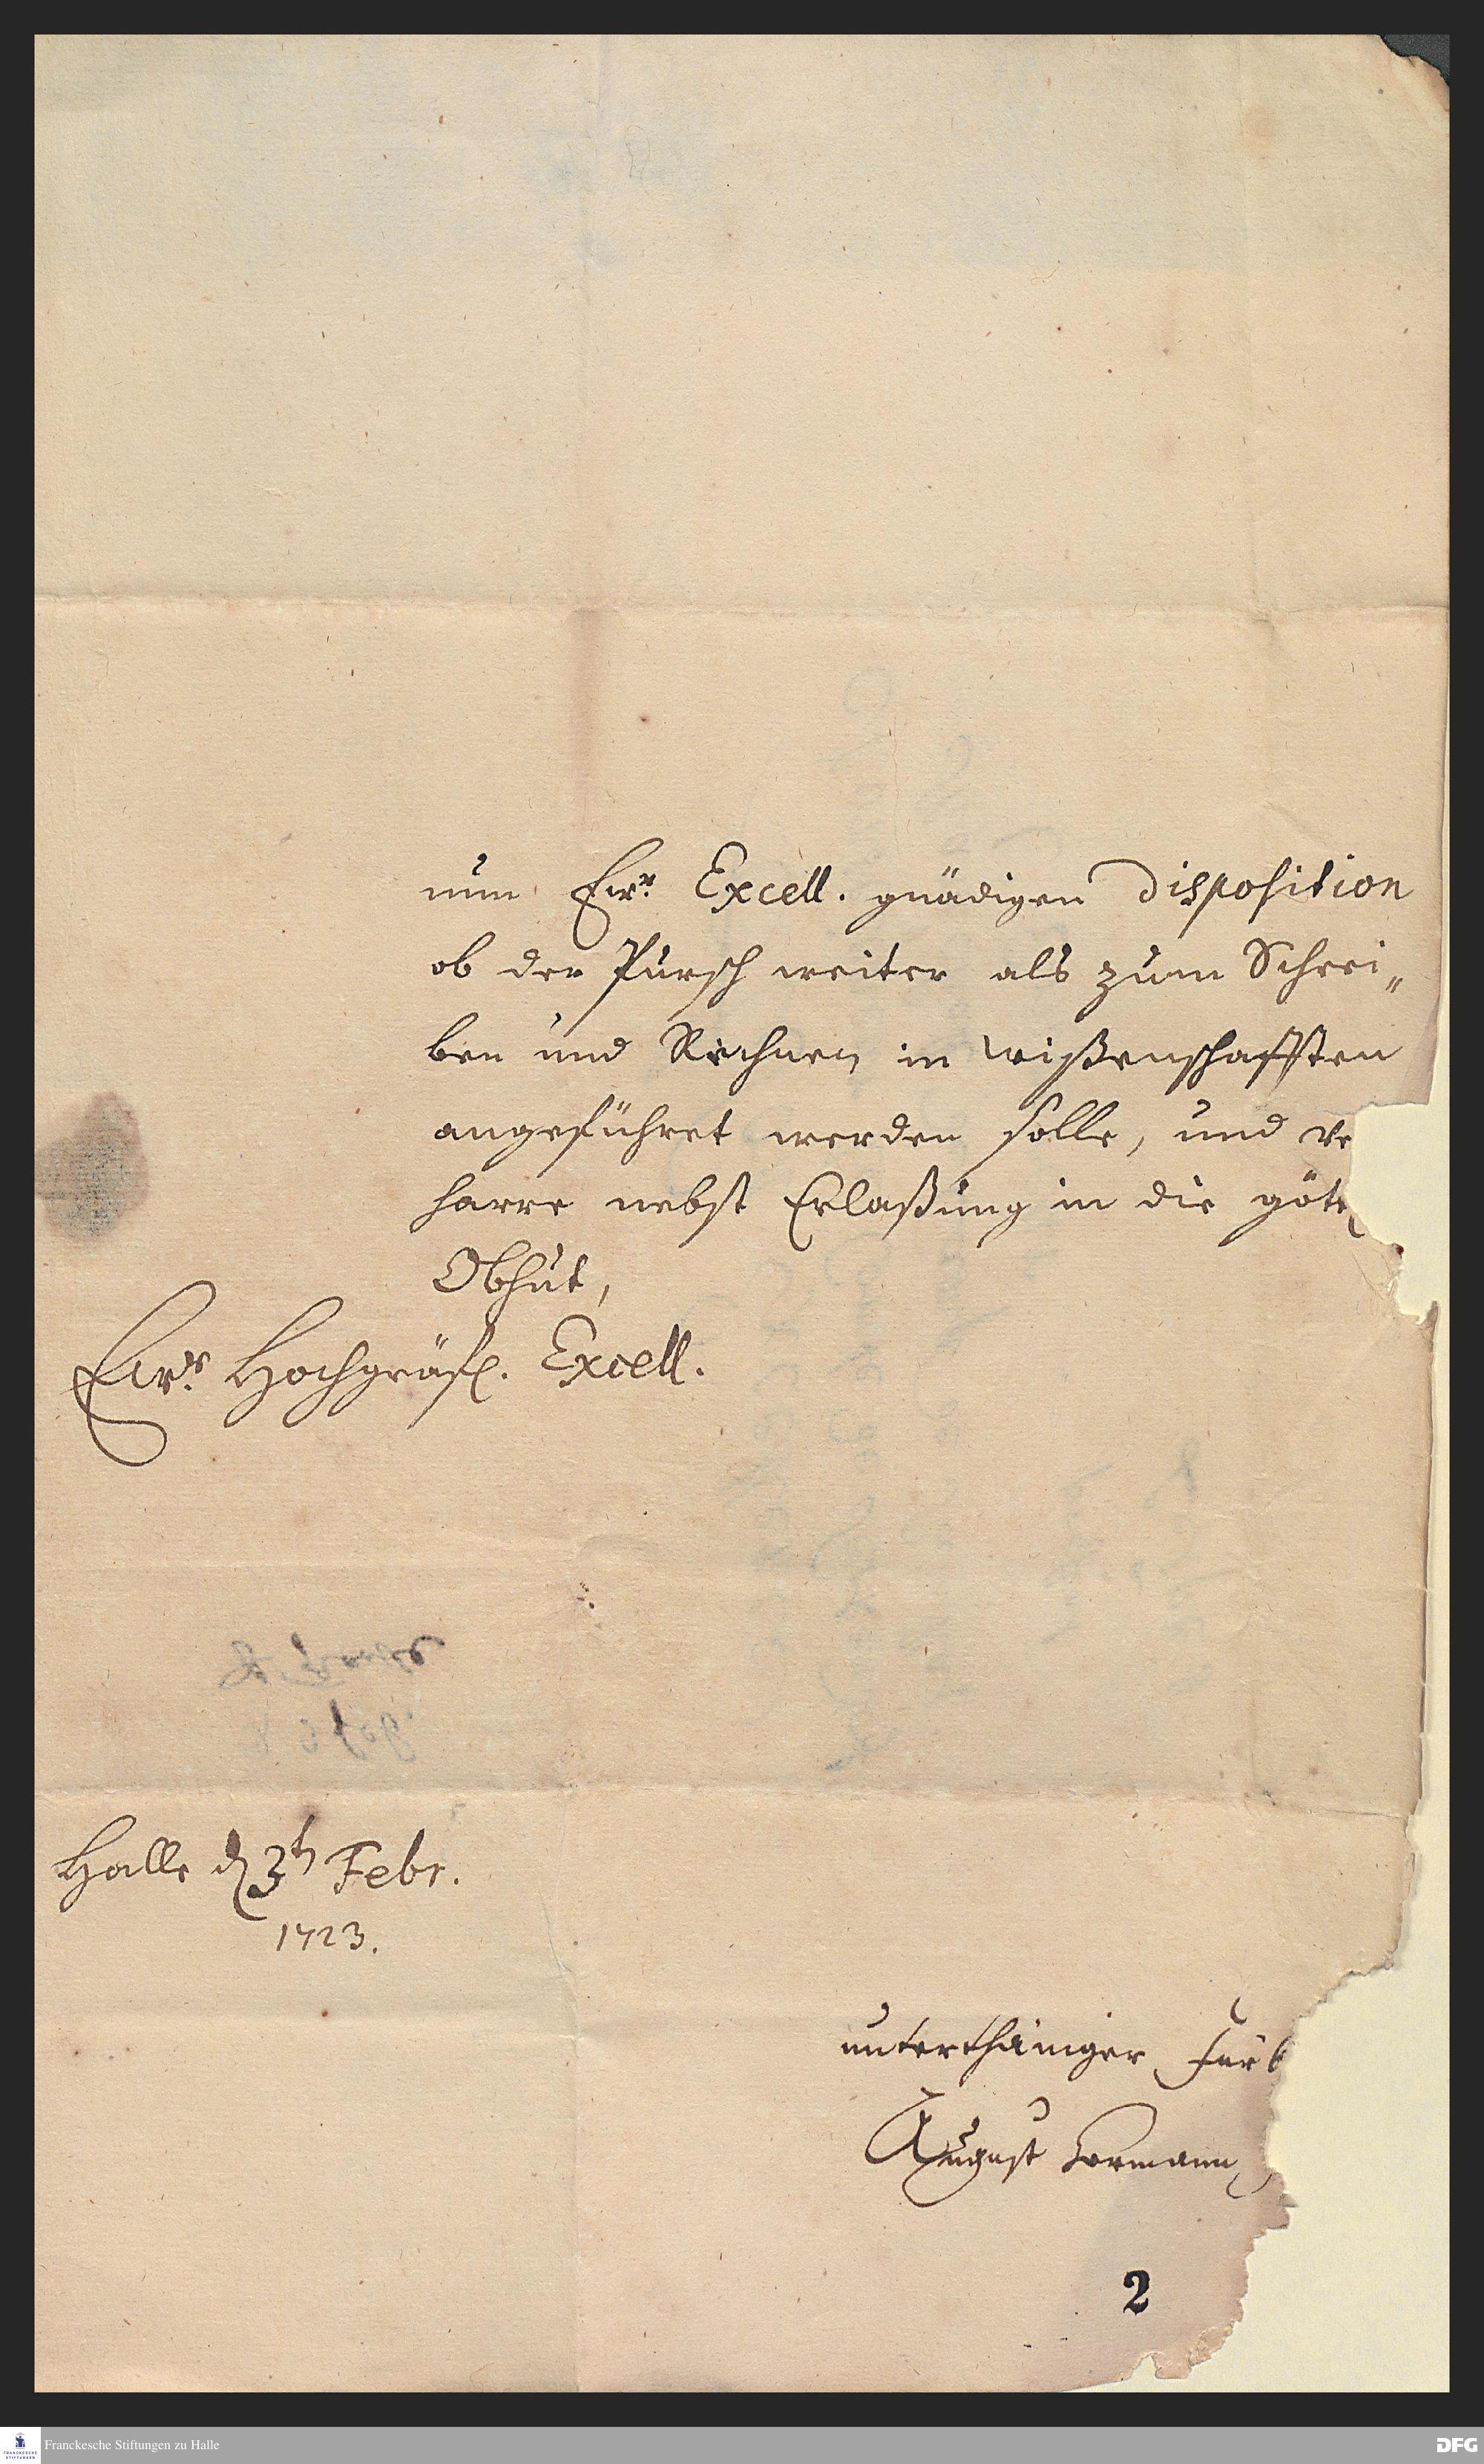 nun Ewr. Excell. gnädigen Disposition
ob der Pursch weiter als zum Schrei„
ben und Rechnen in wißenschafften
angeführet werden solle, und ve
harre nebst Erlaßung in die göt
Obhut,
Ewr. Hochgräfl. Excell.
Halle d 3th Febr.
1723.
unterthäniger Fürb
August
2
Franckesche Stiftungen zu Halle
FRANCKESCHE STIFTUNGEN
DFG